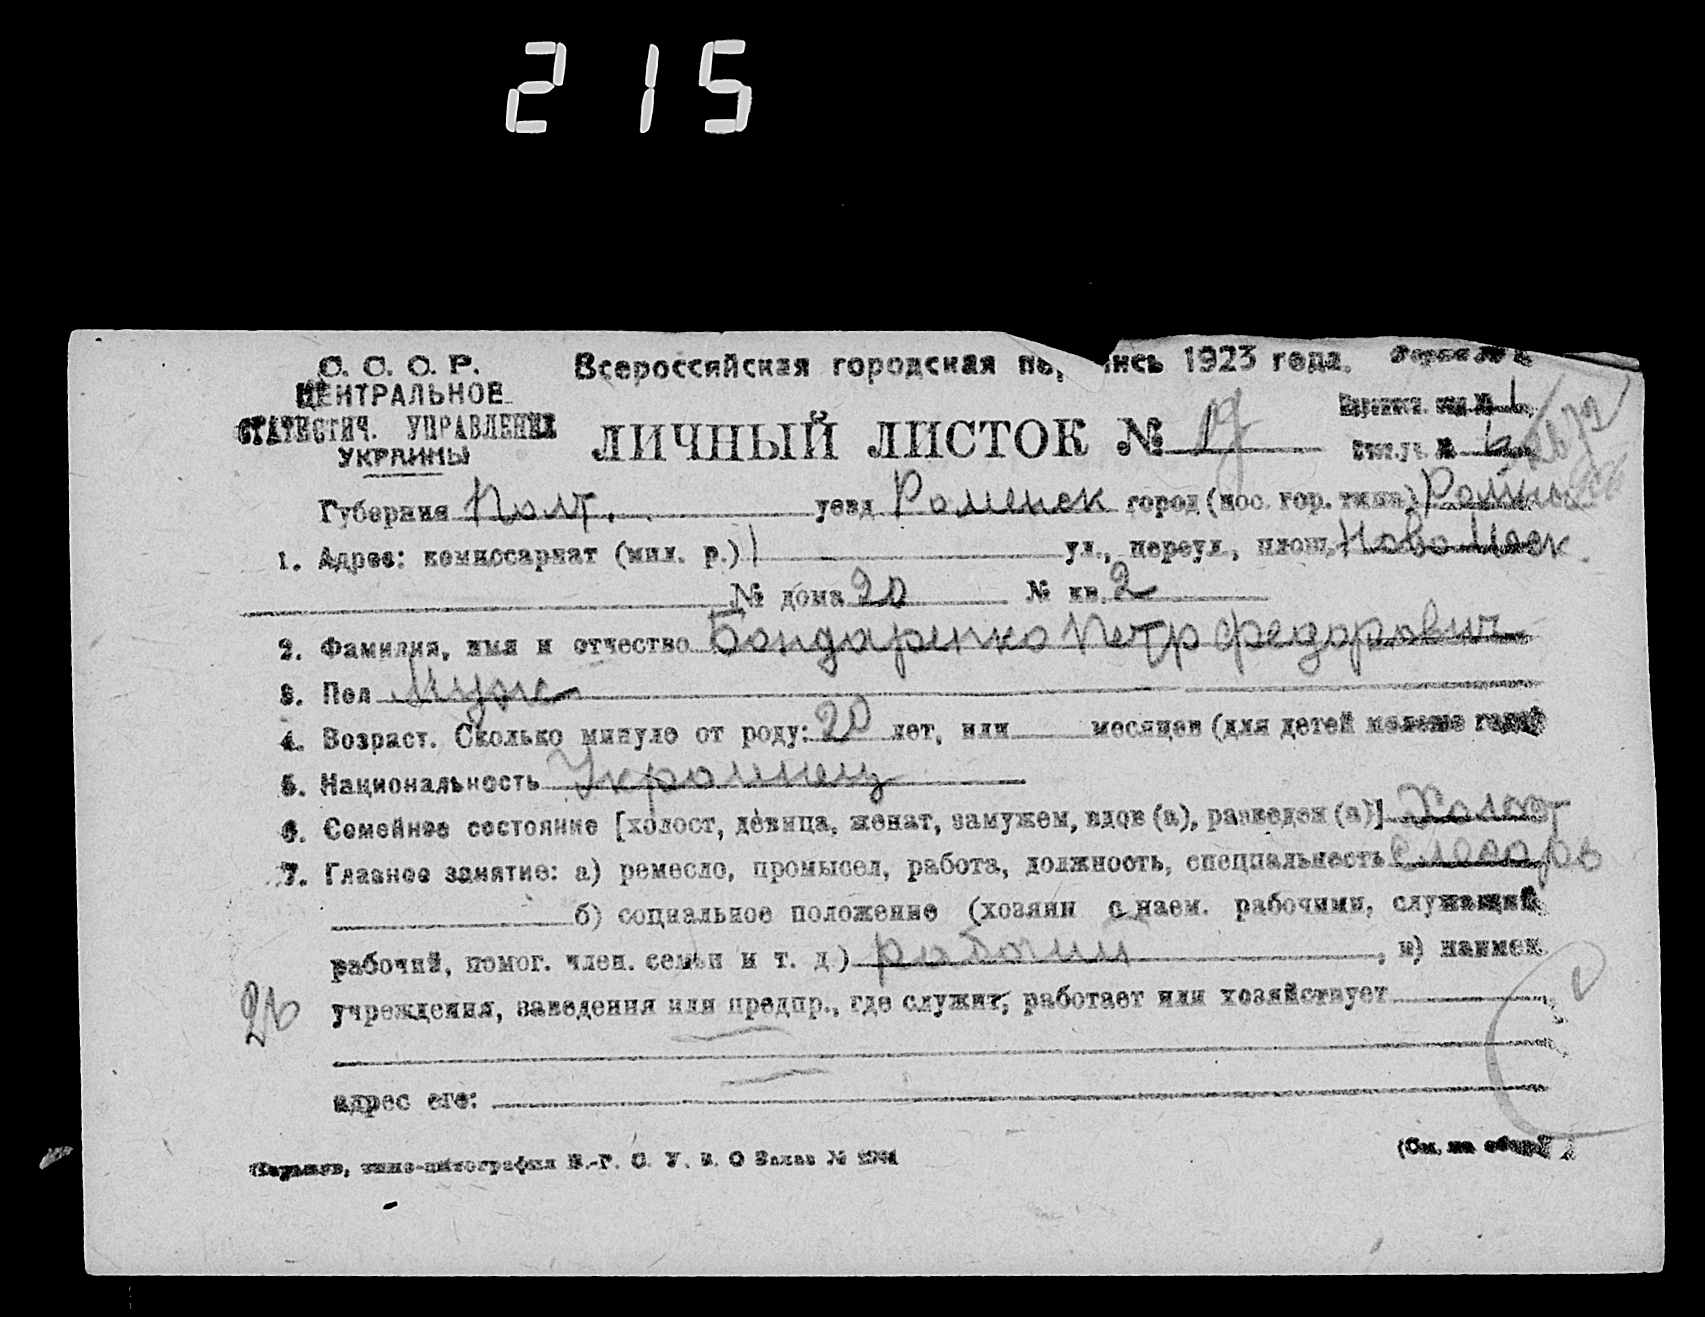 215
С. С. С. Р.
ЦЕНТРАЛЬНОЕ
СТАТИСТИЧ. УПРАВЛЕНИЕ
УКРАИНЫ
Всероссийская городская пе пись 1923 года.
ЛИЧНЫЙ ЛИСТОК №
Губерния Полт. уезд Роменск город (пос. гор. типа) Ромны
1. Адрес: комиссариат (мил. р.) 1 ул., переул., площ. Ново Моск.
№ дома 20 № кв. 2
2. Фамилия, имя и отчество Бондаренко Петр Федорович
3. Пол Муж
4. Возраст. Сколько минуло от роду: 20 лет, или месяцев (для детей моложе года)
5. Национальность Украинец
6. Семейное состояние [холост, девица, женат, замужем, вдов (а), разведен (а)] Холост
7. Главное занятие: а) ремесло, промысел, работа, должность, специальность Слесарь
б) социальное положение (хозяин с наем. рабочими, служащий
рабочий, помог. член. семьи и т. д.) рабочий, в) наимен.
учреждения, заведения или предпр., где служит, работает или хозяйствует
адрес его:
(См. на обор.)